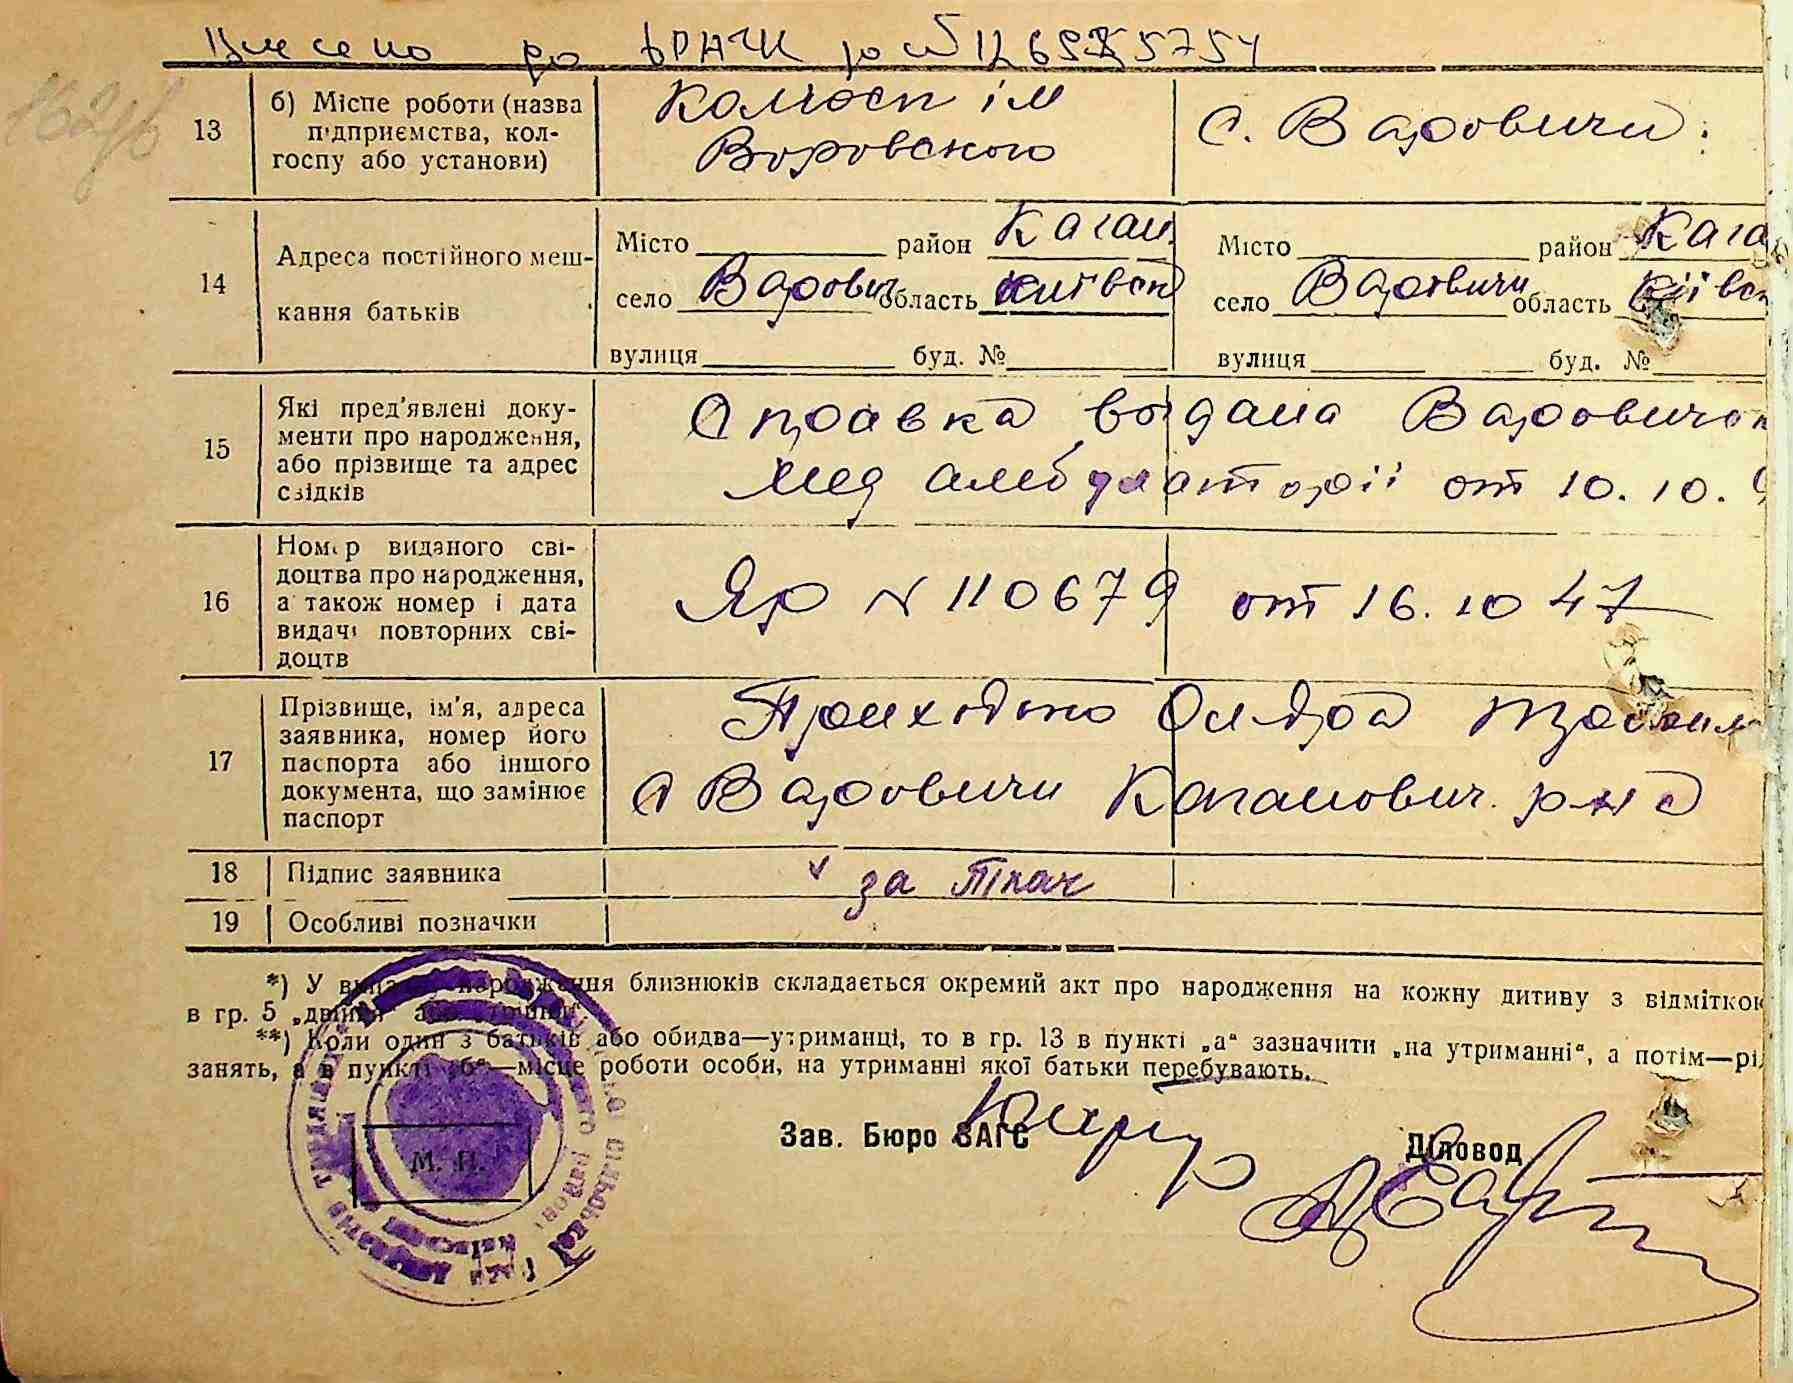 Внесено до
13
б) Місце роботи (назва
підприємства, кол-
госпу або установи)
Колгосп ім
Воровського
с. Варовичи
14
Адреса постійного меш-
кання батьків
Місто район Каган.
село Варович область київськ
вулиця буд. №
Місто район Кага
село Варовичи область київськ
вулиця буд. №
15
Які пред'явлені доку-
менти про народження,
або прізвище та адрес
свідків
Справка выдана Варовичск
мед амбулаторії от 10.10.
16
Номер виданого сві-
доцтва про народження,
а також номер і дата
видачі повторних сві-
доцтв
Яр N 110679 от 16.10 47
17
Прізвище, ім'я, адреса
заявника, номер його
паспорта або іншого
документа, що замінює
паспорт
Приходько
с Варовичи Каганович. р-на
18
Підпис заявника
за Ткач
19
Особливі позначки
*) У випадку народження близнюків складається окремий акт про народження на кожну дитину з відміткою
в гр. 5 „двійня" або „трійня".
**) Коли один з батьків або обидва—утриманці, то в гр. 13 в пункті „а" зазначити „на утриманні", а потім—рі
занять, а в пункті „б"—місце роботи особи, на утриманні якої батьки перебувають.
Зав. Бюро ЗАГС
Діловод
М. П.